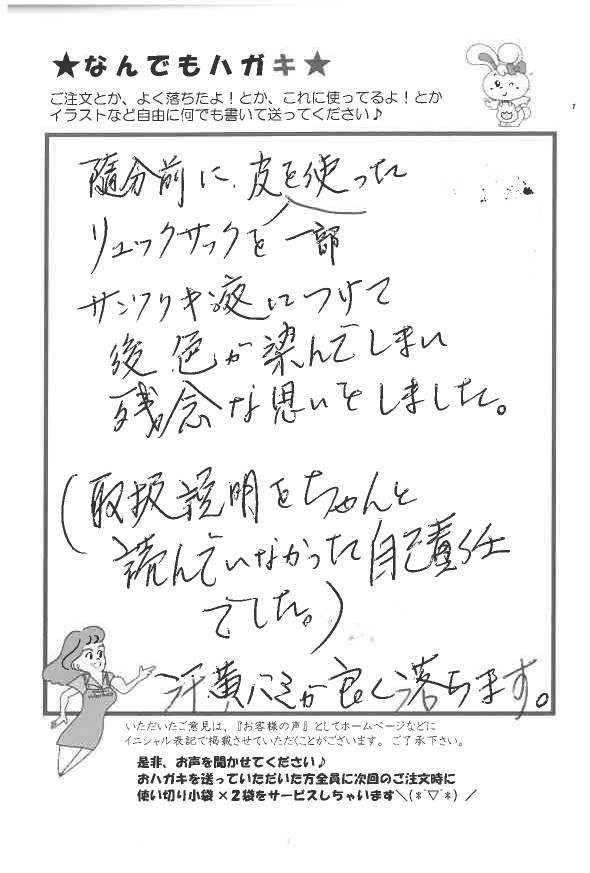 ★なんでもハガキ★
ご注文とか、よく落ちたよ！とか、これに使ってるよ！とか
イラストなど自由に何でも書いて送ってください♪
随分前に、皮を使った
一部
リュックサックを
サンワリキ液につけて
後色が染んでしまい
残念な思いをしました。
(取扱説明をちゃんと
読んでいなかった自己責任
でした。)
汗黄バミが良く落ちます。
いただいたご意見は、『お客様の声』としてホームページなどに
イニシャル表記で掲載させていただくことがございます。ご了承下さい。
是非、お声を聞かせてください♪
おハガキを送っていただいた方全員に次回のご注文時に
使い切り小袋×2袋をサービスしちゃいます＼(*ﾟ▽ﾟ*)／